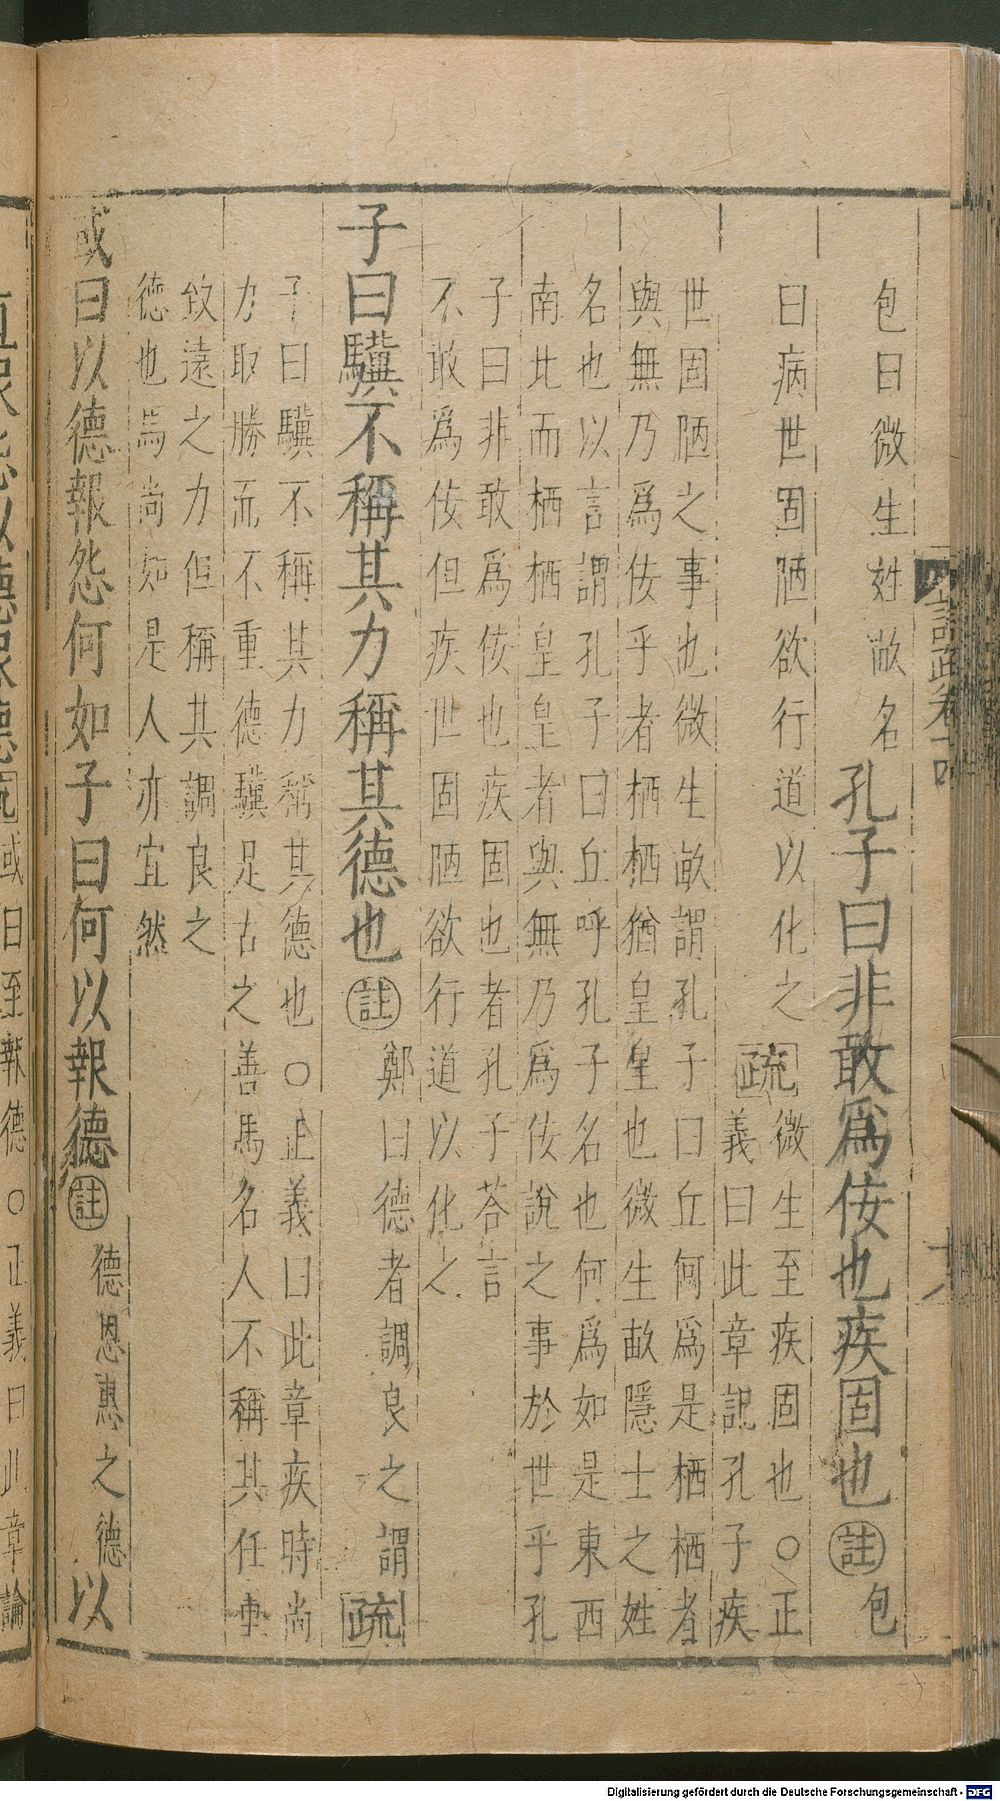 包曰微生姓畝名孔子曰非敢爲佞也疾固也註包
曰病世固陋欲行道以化之疏微生至疾固也○正
義曰此章記孔子疾
世固陋之事也微生畝謂孔子曰丘何爲是栖栖者
與無乃爲佞乎者栖栖猶皇皇也微生畝隱士之姓
名也以言謂孔子曰丘呼孔子名也何爲如是東西
南北而栖栖皇皇者與無乃爲佞說之事於世乎孔
子曰非敢爲佞也疾固也者孔子荅言
不敢爲佞但疾世固陋欲行道以化之
子曰驥不稱其力稱其德也註鄭曰德者調良之謂疏
子曰驥不稱其力稱其德也○正義曰此章疾時尚
力取勝而不重德驥是古之善馬名人不稱其任重
致遠之力但稱其調良之
德也馬尚如是人亦宜然
或曰以德報怨何如子曰何以報德註德恩惠之德以
直報怨以德報德疏或曰至報德○正義曰此章論